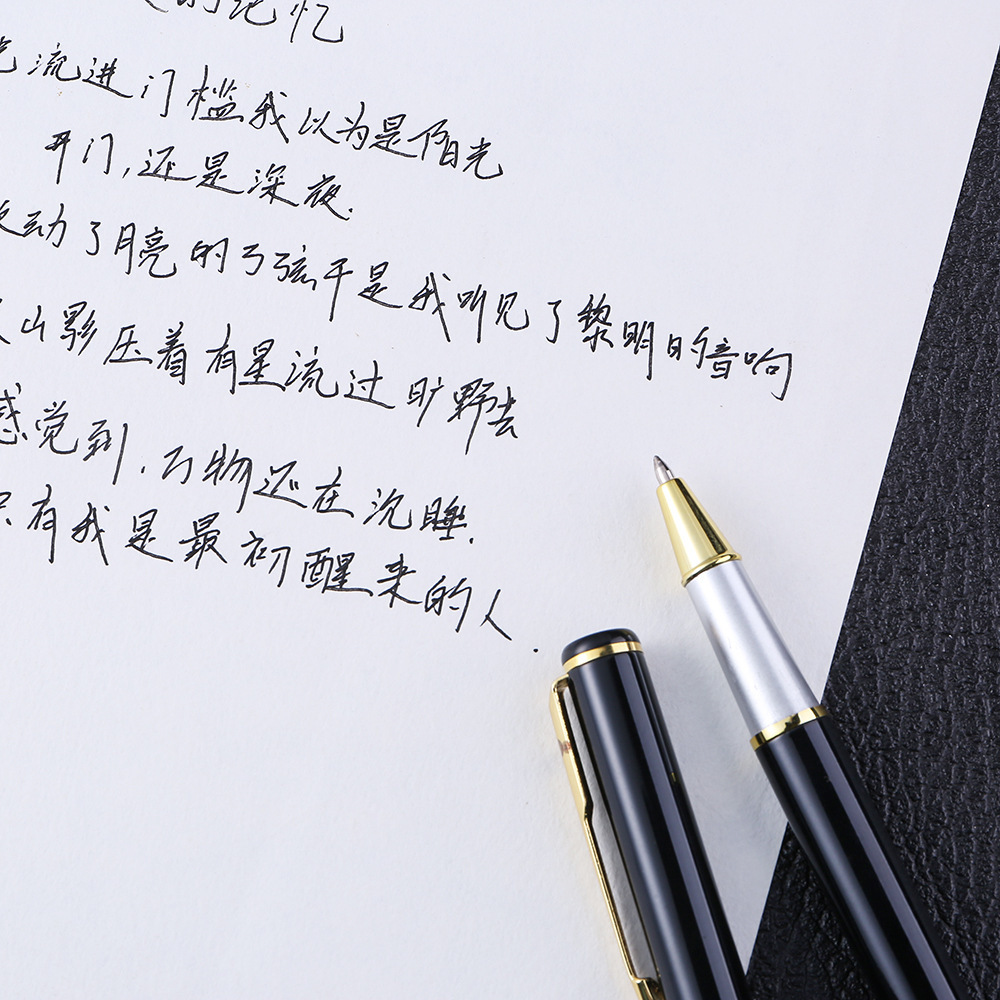 的记忆
光流进门槛我以为是阳光
开门,还是深夜.
动了月亮的弓弦于是我听见了黎明的音响
山影压着有星流过旷野去
感觉到.万物还在沉睡.
只有我是最初醒来的人.